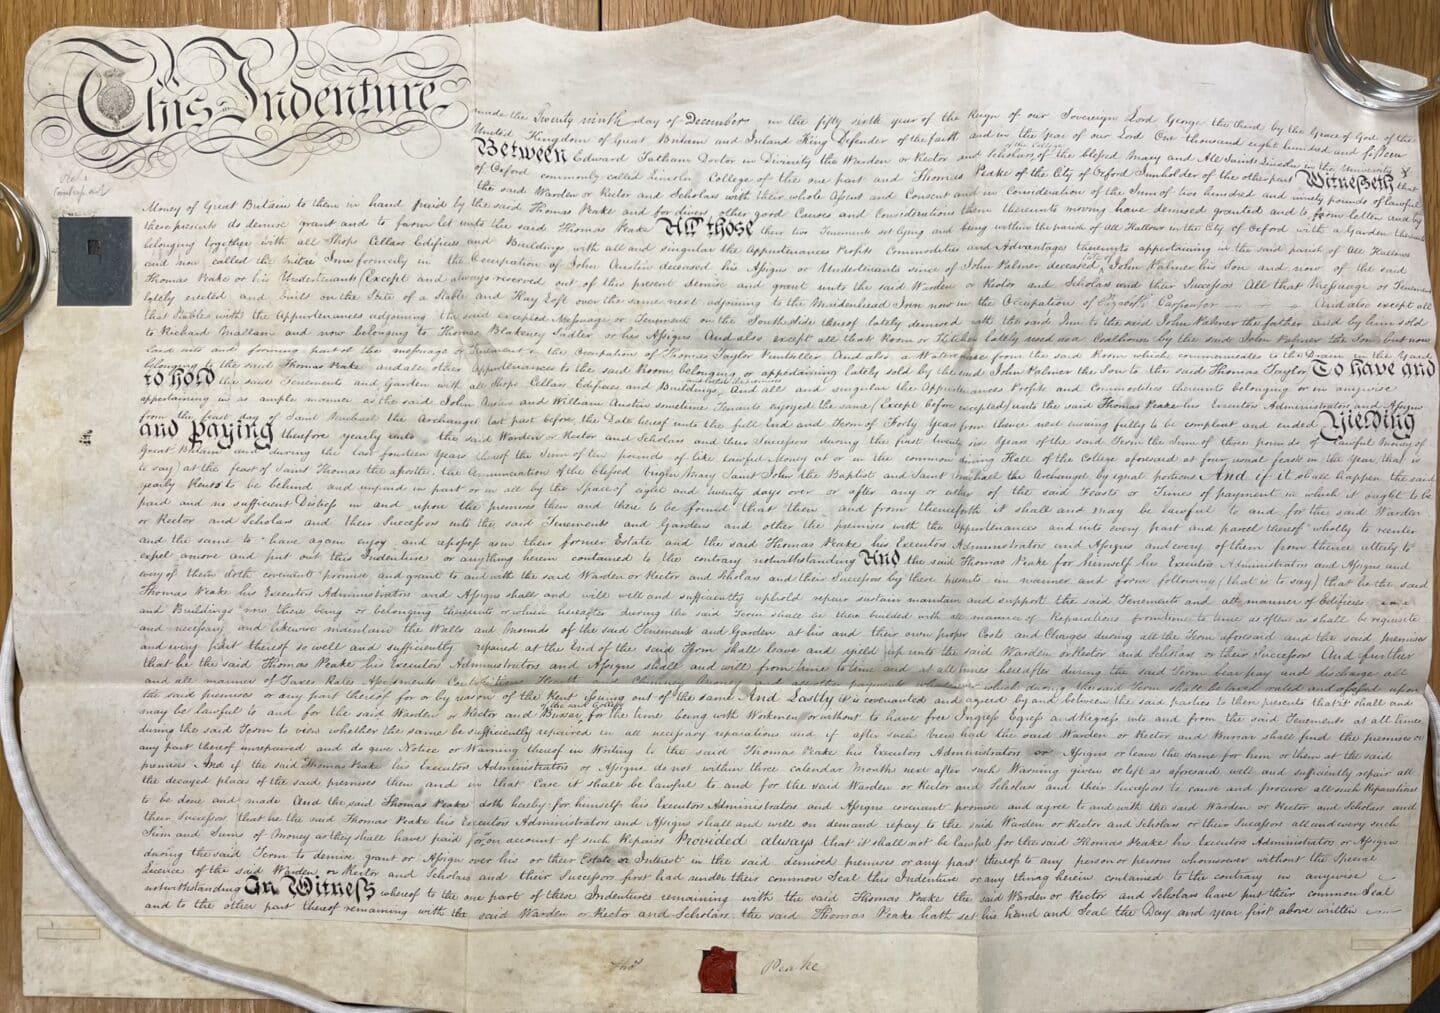 This Indenture
made the Twenty ninth day of December in the fifty sixth year of the Reign of our Sovereign Lord George the third by the Grace of God of the
United Kingdom of Great Britain and Ireland King Defender of the faith and in the Year of our Lord One thousand eight hundred and fifteen
Between Edward Tatham Doctor in Divinity the Warden or Rector and Scholars of the College of the blessed Mary and All Saints Lincoln in the University
of Oxford commonly called Lincoln College of the one part and Thomas Peake of the City of Oxford Innholder of the other part Witnesseth that
the said Warden or Rector and Scholars with their whole Assent and Consent and in Consideration of the Sum of two hundred and ninety pounds of lawful
Money of Great Britain to them in hand paid by the said Thomas Peake and for divers other good Causes and Considerations them thereunto moving have demised granted and to farm letten and by
these presents do demise grant and to farm let unto the said Thomas Peake All those their two Tenements set lying and being within the parish of All Hallows in the City of Oxford with a Garden thereunto
belonging together with all Shops Cellars Edifices and Buildings with all and singular the Appurtenances Profits Commodities and Advantages thereunto appertaining in the said parish of All Hallows
and now called the Mitre Inn formerly in the Occupation of John Austin deceased his Assigns or Undertenants since of John Palmer deceased late of John Palmer his Son and now of the said
Thomas Peake or his Undertenants (Except and always reserved out of this present demise and grant unto the said Warden or Rector and Scholars and their Successors All that Messuage or Tenement
lately erected and built on the Scite of a Stable and Hay Loft over the same next adjoining to the Maidenhead Inn now in the Occupation of Carpenter And also except all
that Stable with the Appurtenances adjoining the said excepted Messuage or Tenement on the South side thereof lately demised with the said Inn to the said John Palmer the father and by him sold
to Richard Mallam and now belonging to Thomas Blakeney Sadler or his Assigns And also except all that Room or Kitchen lately used as a Coalhouse by the said John Palmer the Son but now
laid into and forming part of the messuage or Tenement in the Occupation of Thomas Taylor And also a Watercourse from the said Room which communicates to the Drain in the Yard
belonging to the said Thomas Peake and all other Appurtenances to the said Room belonging or appertaining lately sold by the said John Palmer the Son to the said Thomas Taylor To have and
to hold the said Tenements and Garden with all Shops Cellars Edifices and Buildings And all and singular the Appurtenances Profits and Commodities thereunto belonging or in anywise
appertaining in as ample manner as the said John Austin and William Austin sometime Tenants enjoyed the same (Except before excepted) unto the said Thomas Peake his Executors Administrators and Assigns
from the feast day of Saint Michael the Archangel last past before the Date hereof unto the full End and Term of Forty Years from thence next ensuing fully to be compleat and ended Yielding
and paying therefore yearly unto the said Warden or Rector and Scholars and their Successors during the first twenty six Years of the said Term the Sum of three pounds of lawful Money of
Great Britain and during the last fourteen Years thereof the Sum of ten pounds of like lawful Money at or in the common dining Hall of the College aforesaid at four usual feasts in the Year that is
to say) at the feast of Saint Thomas the apostle the Annunciation of the blessed Virgin Mary Saint John the Baptist and Saint Michael the Archangel by equal portions And if it shall happen the said
yearly Rents to be behind and unpaid in part or in all by the Space of eight and twenty days over or after any or either of the said Feasts or Times of payment in which it ought to be
paid and no sufficient Distress in and upon the premises then and there to be found that then and from thenceforth it shall and may be lawful to and for the said Warden
or Rector and Scholars and their Successors into the said Tenements and Gardens and other the premises with the Appurtenances and into every part and parcel thereof wholly to reenter
and the same to have again enjoy and repossess as in their former Estate and the said Thomas Peake his Executors Administrators and Assigns and every of them from thence utterly to
expel amove and put out this Indenture or anything herein contained to the contrary notwithstanding And the said Thomas Peake for himself his Executors Administrators and Assigns and
every of them doth covenant promise and grant to and with the said Warden or Rector and Scholars and their Successors by these presents in manner and form following (that is to say) that he the said
Thomas Peake his Executors Administrators and Assigns shall and will well and sufficiently uphold repair sustain maintain and support the said Tenements and all manner of Edifices
and Buildings now there being or belonging thereunto or which hereafter during the said Term shall be there builded with all manner of Reparations from time to time as often as shall be requisite
and necessary and likewise maintain the Walls and Mounds of the said Tenements and Garden at his and their own proper Costs and Charges during all the Term aforesaid and the said premises
and every part thereof so well and sufficiently repaired at the End of the said Term shall leave and yield up unto the said Warden or Rector and Scholars or their Successors And further
that he the said Thomas Peake his Executors Administrators and Assigns shall and will from time to time and at all times hereafter during the said Term bear pay and discharge all
and all manner of Taxes Rates Assessments Contributions Hearth and Chimney Money and all other payments whatsoever which during the said Term shall be taxed rated and assessed upon
the said premises or any part thereof for or by reason of the Rent issuing out of the same And Lastly it is covenanted and agreed by and between the said parties to these presents that it shall and
may be lawful to and for the said Warden or Rector and Bursar of the said College for the time being with Workmen or without to have free Ingress Egress and Regress into and from the said Tenements at all times
during the said Term to view whether the same be sufficiently repaired in all necessary reparations and if after such view had the said Warden or Rector and Bursar shall find the premises or
any part thereof unrepaired and do give Notice or Warning thereof in Writing to the said Thomas Peake his Executors Administrators or Assigns or leave the same for him or them at the said
premises And if the said Thomas Peake his Executors Administrators or Assigns do not within three calendar Month next after such Warning given or left as aforesaid well and sufficiently repair all
the decayed places of the said premises then and in that Case it shall be lawful to and for the said Warden or Rector and Scholars and their Successors to cause and procure all such Reparations
to be done and made And the said Thomas Peake doth hereby for himself his Executors Administrators and Assigns covenant promise and agree to and with the said Warden or Rector and Scholars and
their Successors that he the said Thomas Peake his Executors Administrators and Assigns shall and will on demand repay to the said Warden or Rector and Scholars or their Successors all and every such
Sum and Sums of Money as they shall have paid for on account of such Repairs Provided always that it shall not be lawful for the said Thomas Peake his Executors Administrators or Assigns
during the said Term to demise grant or Assign over his or their Estate or Interest in the said demised premises or any part thereof to any person or persons whomsoever without the Special
Licence of the said Warden or Rector and Scholars and their Successors first had under their common Seal this Indenture or any thing herein contained to the contrary in anywise
notwithstanding In Witness whereof to the one part of these Indentures remaining with the said Thomas Peake the said Warden or Rector and Scholars have put their common Seal
and to the other part thereof remaining with the said Warden or Rector and Scholars the said Thomas Peake hath set his hand and Seal the Day and year first above written
Thos Peake